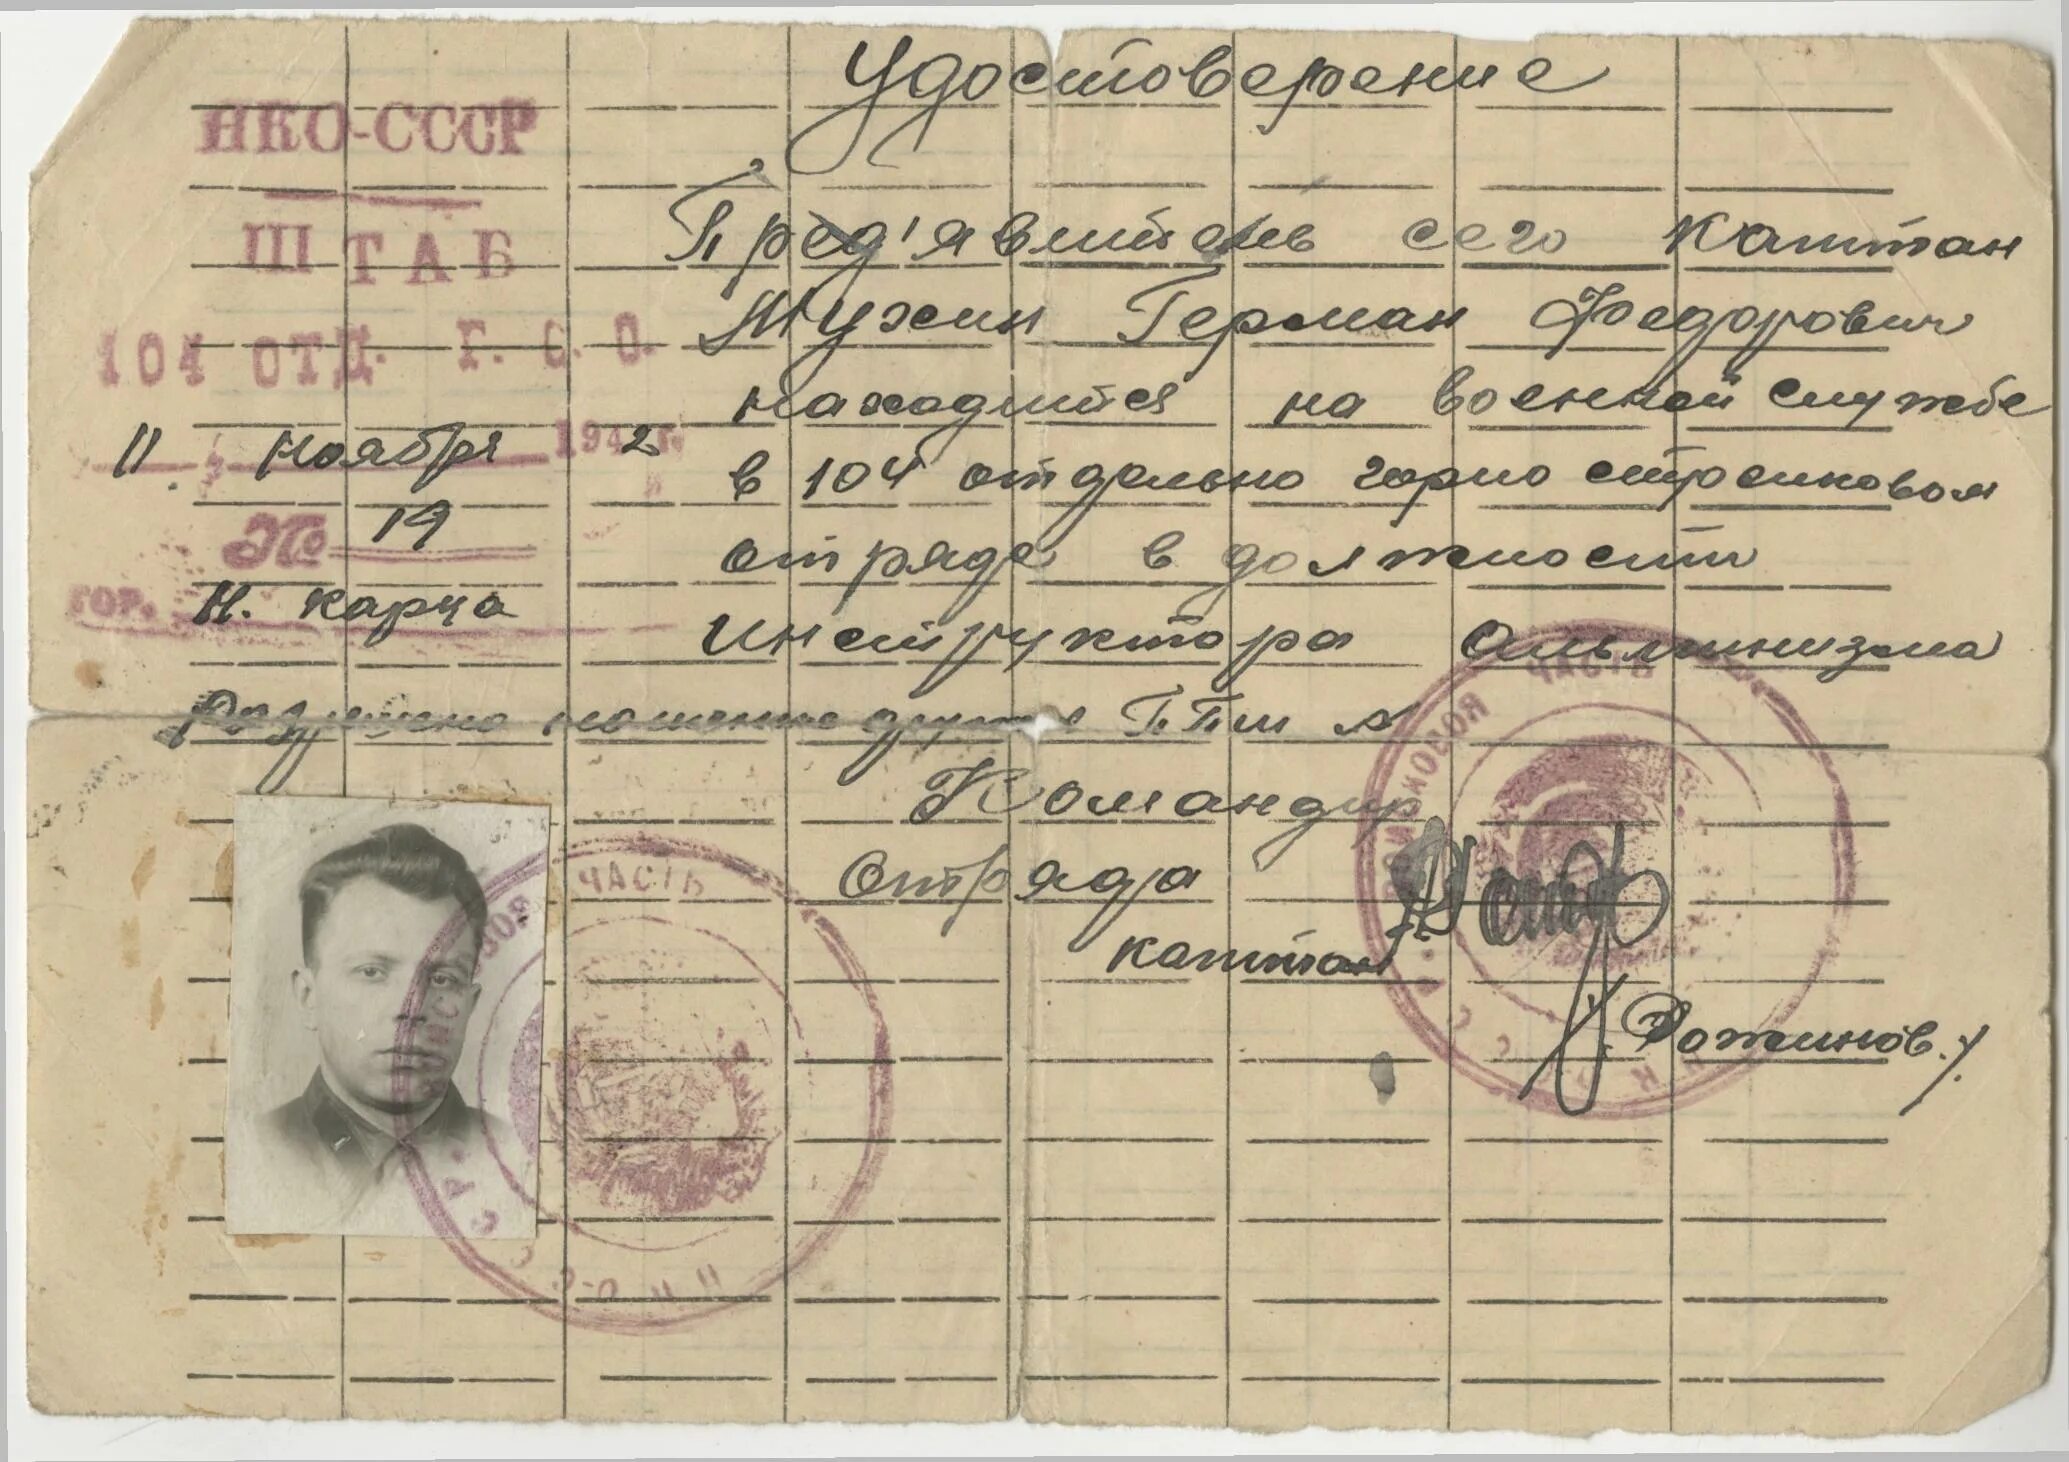 Удостоверение
НКО-СССР
ШТАБ
104 ОТД. Г. С. О.
11 ноября 1942 г.
№ 19
гор. Н. карча
Пред'явитель сего капитан
Мухин Герман Федорович
находится на военной службе
в 104 отдельно горно стрелковом
отряде в должности
Инструктора Альпинизма
Разрешено ношение оружия
Командир
Отряда
капитан
ЧАСТЬ
ЧАСТЬ